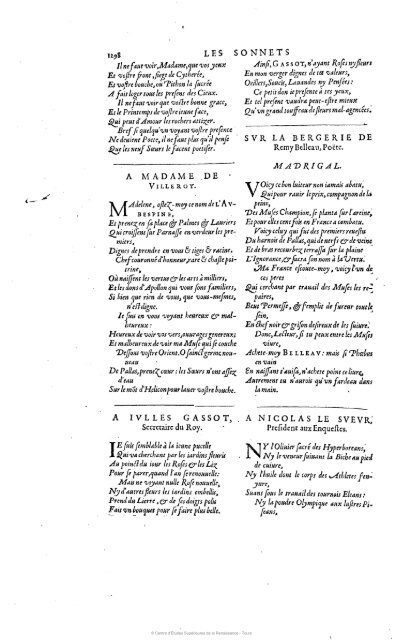 1298
LES SONNETS
Il ne faut voir, Madame, que vos yeux
Et vostre front, siege de Cytherée,
Et vostre bouche, où Pithon la sucrée
A fait loger tous les presens des Cieux.
Il ne faut voir que vostre bonne grace,
Et le Printemps de vostre jeune face,
Qui peut d'Amour les rochers attizer.
Bref si quelqu'un voyant vostre presence
Ne devient Poëte, il ne faut plus qu'il pense
Que les neuf Sœurs le facent poëtiser.
A MADAME DE
VILLEROY.
MAdelene, ostez-moy ce nom de L'AV-
BESPINE,
Et prenez en sa place & Palmes & Lauriers
Qui croissent sur Parnasse en verdeur les pre-
miers,
Dignes de prendre en vous & tiges & racine.
Chef couronné d'honneur, rare & chaste poi-
trine,
Où naissent les vertus & les arts à milliers,
Et les dons d'Apollon qui vous sont familiers,
Si bien que rien de vous, que vous-mesmes,
n'est digne.
Je suis en vous voyant heureux & mal-
heureux:
Heureux de voir vos vers, ouvrages genereux:
Et malheureux de voir ma Muse qui se couche
Dessous vostre Orient. O sainct germe nou-
veau
De Pallas, prenez cœur: les Sœurs n'ont assez
d'eau
Sur le mont d'Helicon pour laver vostre bouche.
A IVLLES GASSOT,
Secretaire du Roy.
IE suis semblable à la jeune pucelle
Qui va cherchant par les jardins fleuris
Au poinct du jour les Roses & les Liz
Pour se parer, quand l'an se renouvelle:
Mais ne voyant nulle Rose nouvelle,
Ny d'autres fleurs les jardins embellis,
Prend du Lierre, & de ses doigts polis
Fait un bouquet pour se faire plus belle.
Ainsi, GASSOT, n'ayant Roses ny fleurs
En mon verger dignes de tes valeurs,
Oeillets, Soucis, Lavandes ny Pensées:
Ce petit don je presente à tes yeux,
Et tel present vaudra peut-estre mieux
Qu'un grand de fleurs mal-agencées.
SVR LA BERGERIE DE
Remy Belleau, Poëte.
MADRIGAL.
VOicy ce bon luiteur non jamais abatu,
Qui pour ravir le prix, compagnon de la
peine,
Des Muses Champion, se planta sur l'areine,
Et pour elles cent fois en France a combatu.
Voicy celuy qui fut des premiers revestu
Du harnois de Pallas, qui de nerfs & de veine
Et de bras recourbez terrassa sur la plaine
L'Ignorance, & sacra son nom à la Vertu.
Ma France escoute-moy, voicy l'un de
tes peres
Qui cherchant par travail des Muses les re-
paires,
Beut Permesse, & s'emplit de fureur tout le
sein,
En chef noir & grison desireux de les suivre.
Donc, Lecteur, si tu peux entre les Muses
vivre,
Achete-moy BELLEAV: mais si Phœbus
en vain
En naissant t'avisa, n'achete point ce livre,
Autrement tu n'aurois qu'un fardeau dans
la main.
A NICOLAS LE SVEVR,
President aux Enquestes.
NY l'Olivier sacré des Hyperboreans,
Ny le veneur suivant la Biche au pied
de cuivre,
Ny l'huile dont le corps des Athletes s'en-
yvre,
Suans sous le travail des tournois Eleans:
Ny la poudre Olympique aux lustres Pi-
seans,
© Centre d'Études Supérieures de la Renaissance - Tours